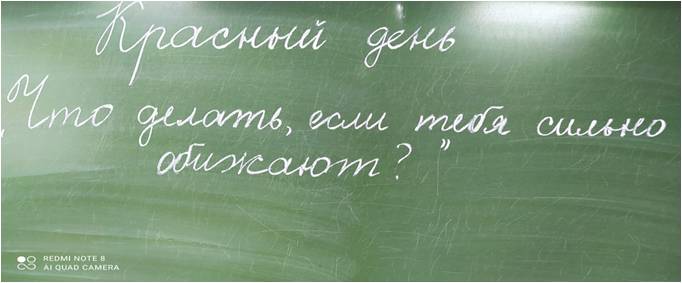 Красный день
„Что делать, если тебя сильно
обижают?”
REDMI NOTE 8
AI QUAD CAMERA